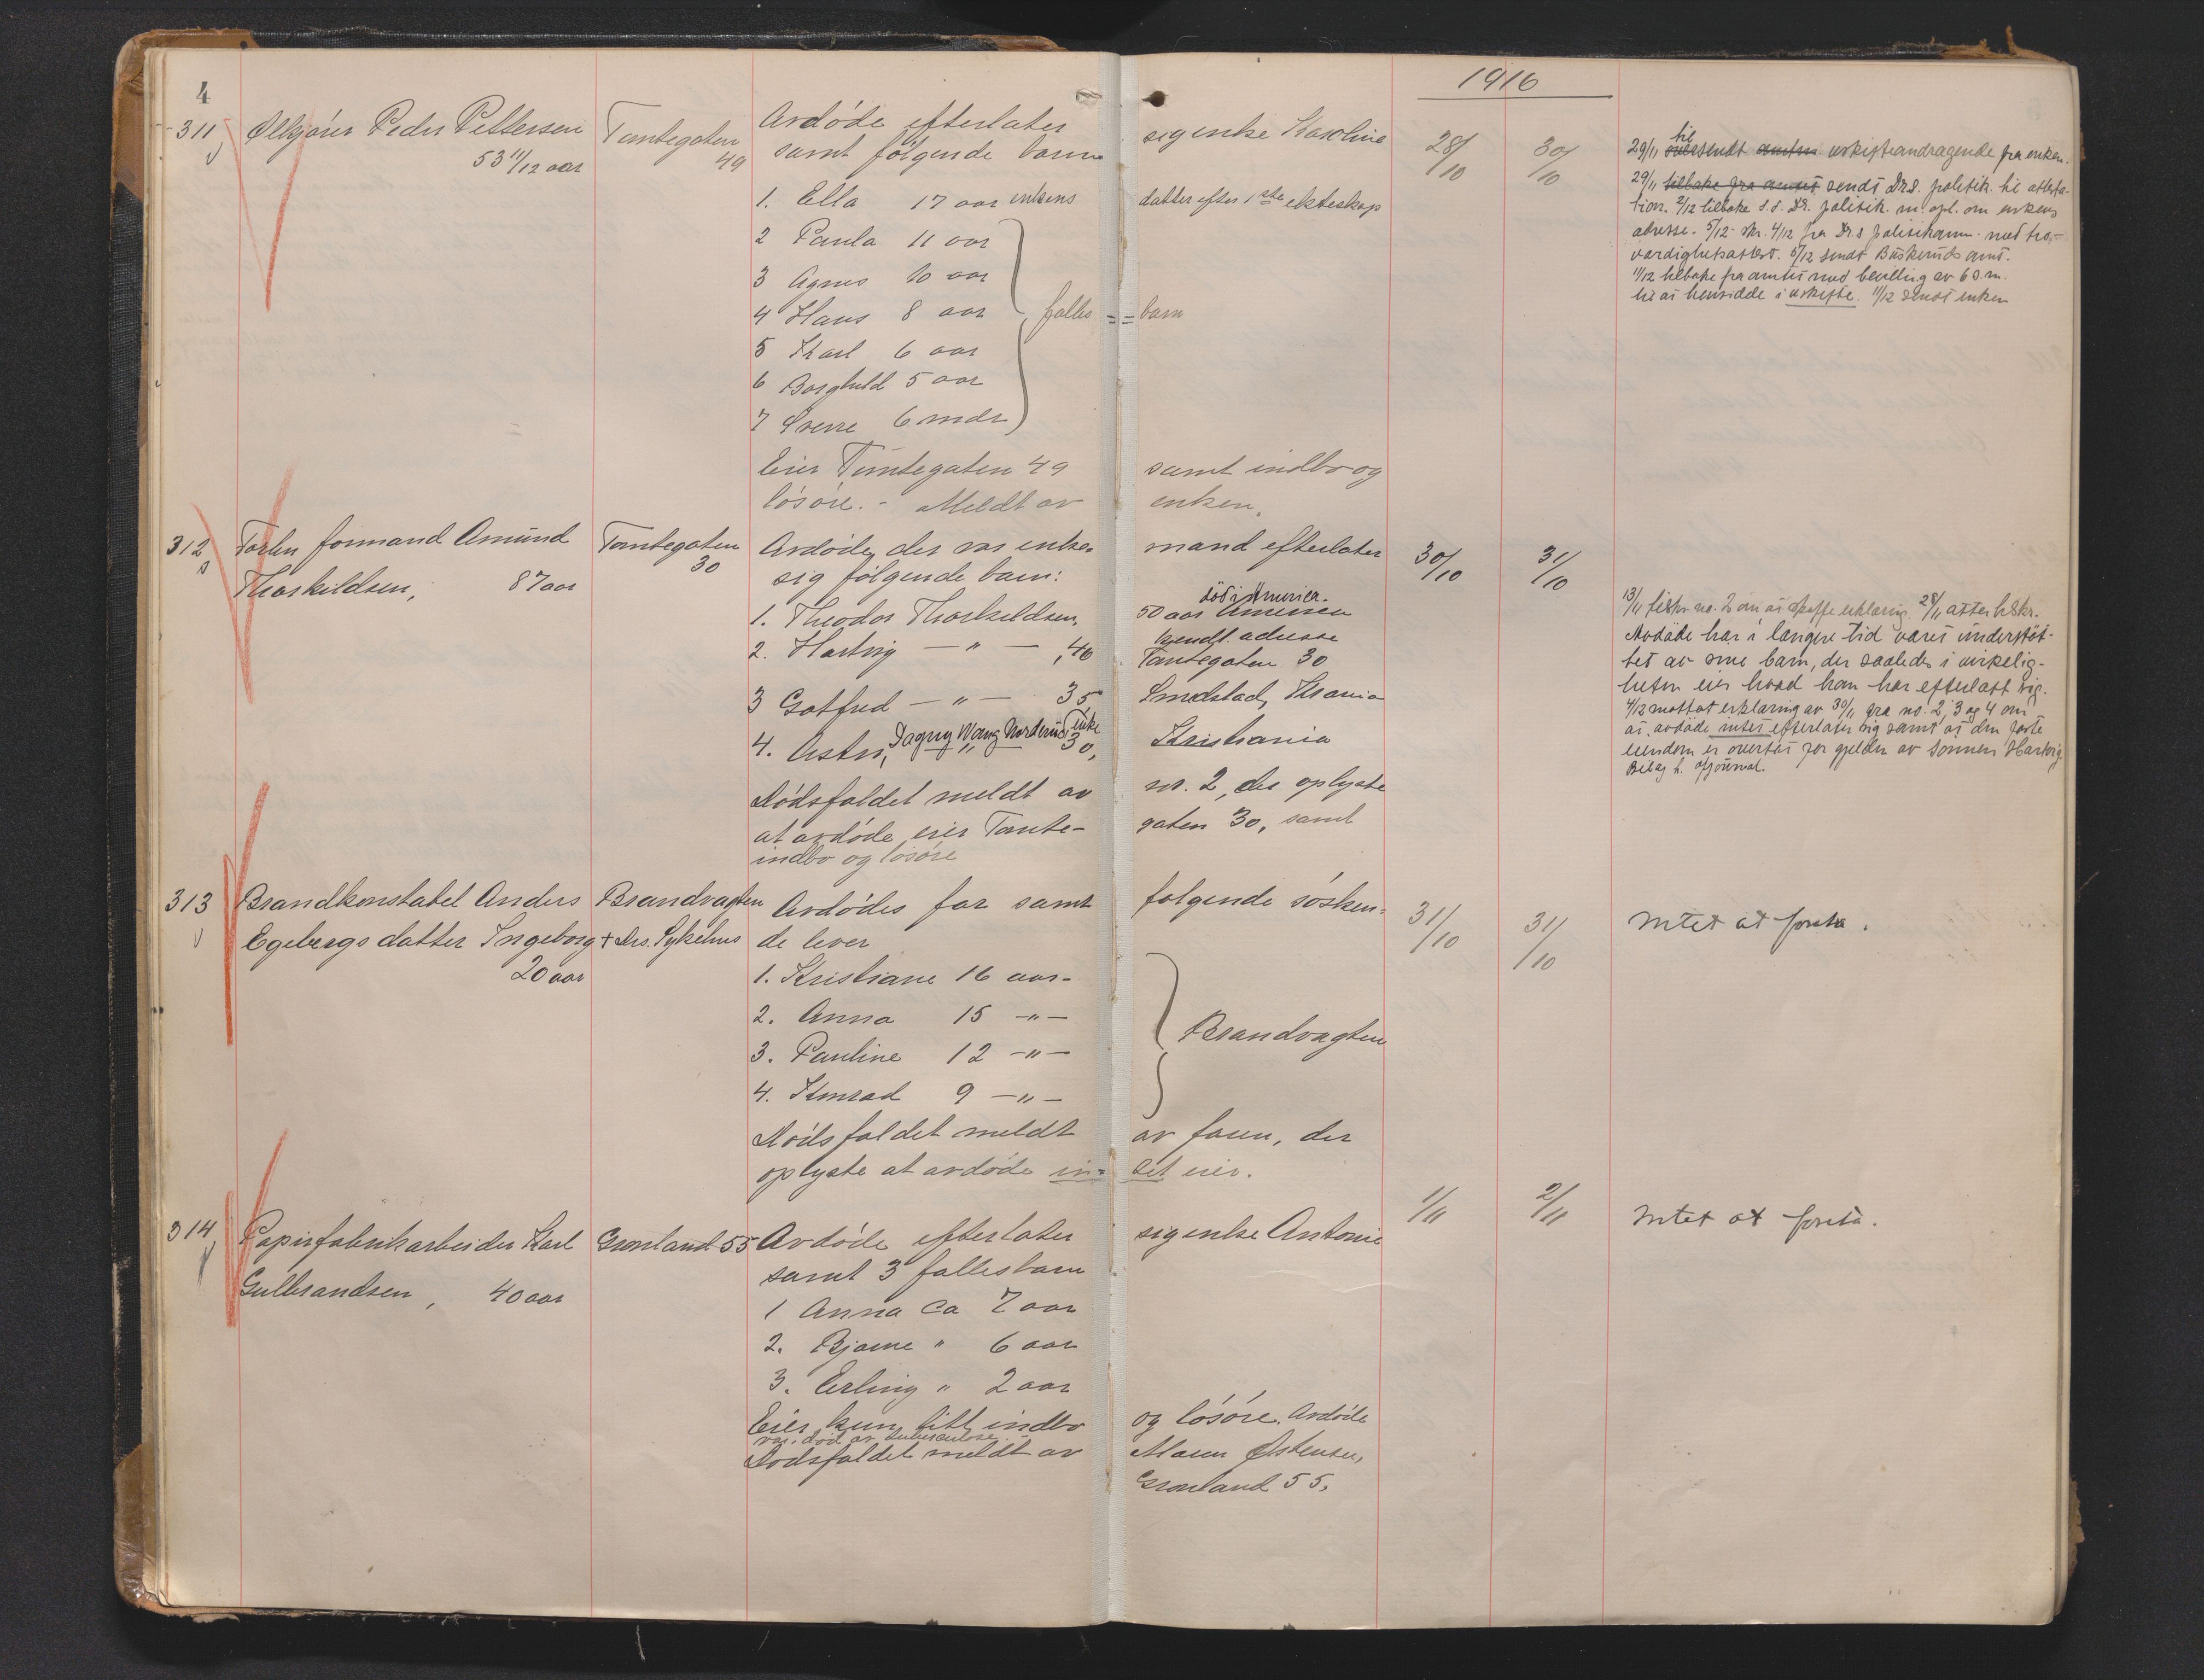 4
1916
311 Ølkjører Peder Pettersen Tomtegaten Avdøde efterlater sig enke Karoline 28/10 30/10
53 11/12 aar 49 samt følgende barn
1. Ella 17 aar enkens datter efter 1ste ekteskap
2 Paula 11 aar
3 Agnes 10 aar
4 Hans 8 aar fælles = = barn
5 Karl 6 aar
6 Borghild 5 aar
7 Sverre 6 mdr
Eier Tomtegaten 49 samt indbo og
løsøre. - Meldt av enken.
til
29/11 oversendt amtm uskifteandragende fra enken.
29/11 tilbake fra amtet sendt Dr.s. politik. til attesta-
tion. 2/12 tilbake s.d. Dr. politik. m. opl. om enkens
adresse. 5/12 skr. 4/12 fra Dr.s politikam. med tro-
værdighetsattest. 5/12 sendt Buskeruds amt.
11/12 tilbake fra amtet med bevilling av 6 d.m.
til at hensidde i uskifte. 11/12 sendt enken
312 formand Amund Tomtegaten Avdøde, der var enke- mand efterlater 30/10 31/10
Thorkildsen, 87 aar 30 sig følgende barn:
død i Amerika.
1. Theodor Thorkildsen, 50 aar Amerika
ukendt adresse
2. Hartvig — " — , 40 Tomtegaten 30
3 Gotfred — " — 35 Smedstad, Krania
Dagny Wang Norderud enke
4. Astri, " 30, Kristiania
Dødsfaldet meldt av nr. 2, der oplyste
at avdøde eier Tomte- gaten 30, samt
indbo og løsøre
13/11 tilskr. no. 2 om at skaffe erklæring. 28/11 atter tilskr.
Avdøde har i længere tid været understøt-
tet av sine barn, der saaledes i virkelig-
heten eier hvad han har efterlatt sig.
4/12 mottat erklæring av 30/11 fra no. 2, 3 og 4 om
at avdøde intet efterlater sig samt at den faste
eiendom er overtat for gjelden av sønnen Hartvig.
Bilag t. dfjournal.
313 Brandkonstabel Anders Brandvagten Avdødes far samt følgende søsken- 31/10 31/10 Intet at foreta.
Egebergs datter Ingeborg + Drs. Sykehus de lever
20 aar 1. Kristiane 16 aar-
2. Anna 15 —"—
3. Pauline 12 —"— Brandvagten
4. Konrad 9 —"—
Dødsfaldet meldt av faren, der
oplyste at avdøde in= tet eier.
314 Papirfabrikarbeider Karl Grønland 55 Avdøde efterlater sig enke Antonie 1/11 2/11 Intet at foreta.
Gulbrandsen, 40 aar samt 3 fællesbarn
1 Anna ca 7 aar
2. Bjarne " 6 aar
3. Erling " 2 aar
Eier kun litt indbo og løsøre. Avdøde
var død av tuberculose.
Dødsfaldet meldt av Maren Østensen,
Grønland 55.